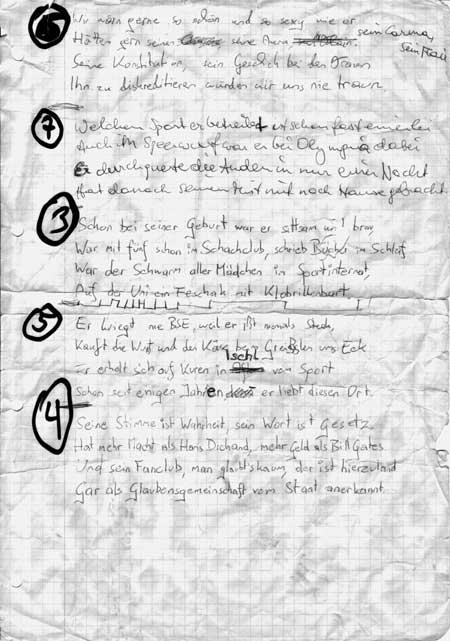 15 Wir wärn gerne so schön und so sexy wie er
Hätten gern seinen seine Aura sein Carma, sein Flair
Seine Konstitution, sein Geschick bei den Frauen
Ihn zu diskreditieren würden wir uns nie traun.
7 Welchen Sport er betreibt ist schon fast einerlei
Auch im Speerwurf war er bei Olympia dabei
Er durchquerte die Anden in nur einer Nacht
Hat danach seinen mit nach Hause gebracht
3 Schon bei seiner Geburt war er sittsam und brav
War mit fünf schon im Schachclub, schrieb Bücher im Schlaf
War der Schwarm aller Mädchen im Sportinternat,
Auf der Uni ein Feschak mit Klobrillenbart.
5 Er kriegt nie BSE, weil er ißt niemals Steak,
Kauft die Wurst und den Käse beim Greißler ums Eck
Er erholt sich auf Kuren in Ischl vom Sport
schon seit einigen Jahren er liebt diesen Ort.
4 Seine Stimme ist Wahrheit, sein Wort ist Gesetz
Hat mehr Macht als Hans Dichand, mehr Geld als Bill Gates
Und sein Fanclub, man glaubt's kaum, der ist hierzuland
Gar als Glaubensgemeinschaft vom Staat anerkannt.